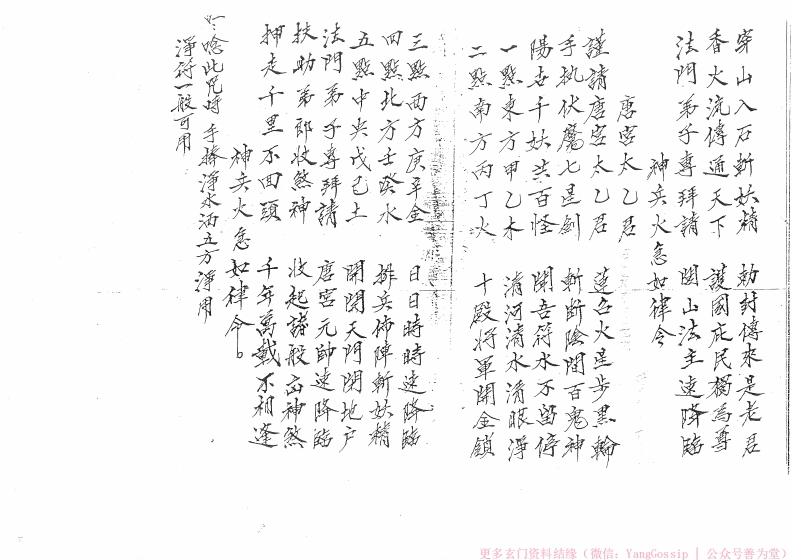 穿山入石斬妖精　勅封傳來是老君
香火流傳通天下　護國庇民獨為尊
法門弟子專拜請　閭山法主速降臨
神兵火急如律令
唐宮太乙君
謹請唐宮太乙君　蓮台火星步黑輪
手执伏魔七星劍　斬断陰間百鬼神
陽世千妖共百怪　開吾符水不留停
一點東方甲乙木　清河清水清眼淨
二點南方丙丁火　十殿将軍開金鎖
三點西方庚辛金　日日時時速降臨
四點北方壬癸水　排兵佈陣斬妖精
五點中央戊己土　開開天門閉地户
法門弟子專拜請　唐宮元帥速降臨
扶助弟郎收煞神　收起諸般凶神煞
押走千里不回頭　千年萬載不相逢
神兵火急如律令。
唸此咒時手捧淨水洒五方淨用
淨符一般可用
更多玄门资料结缘（微信：YangGossip | 公众号善为堂）